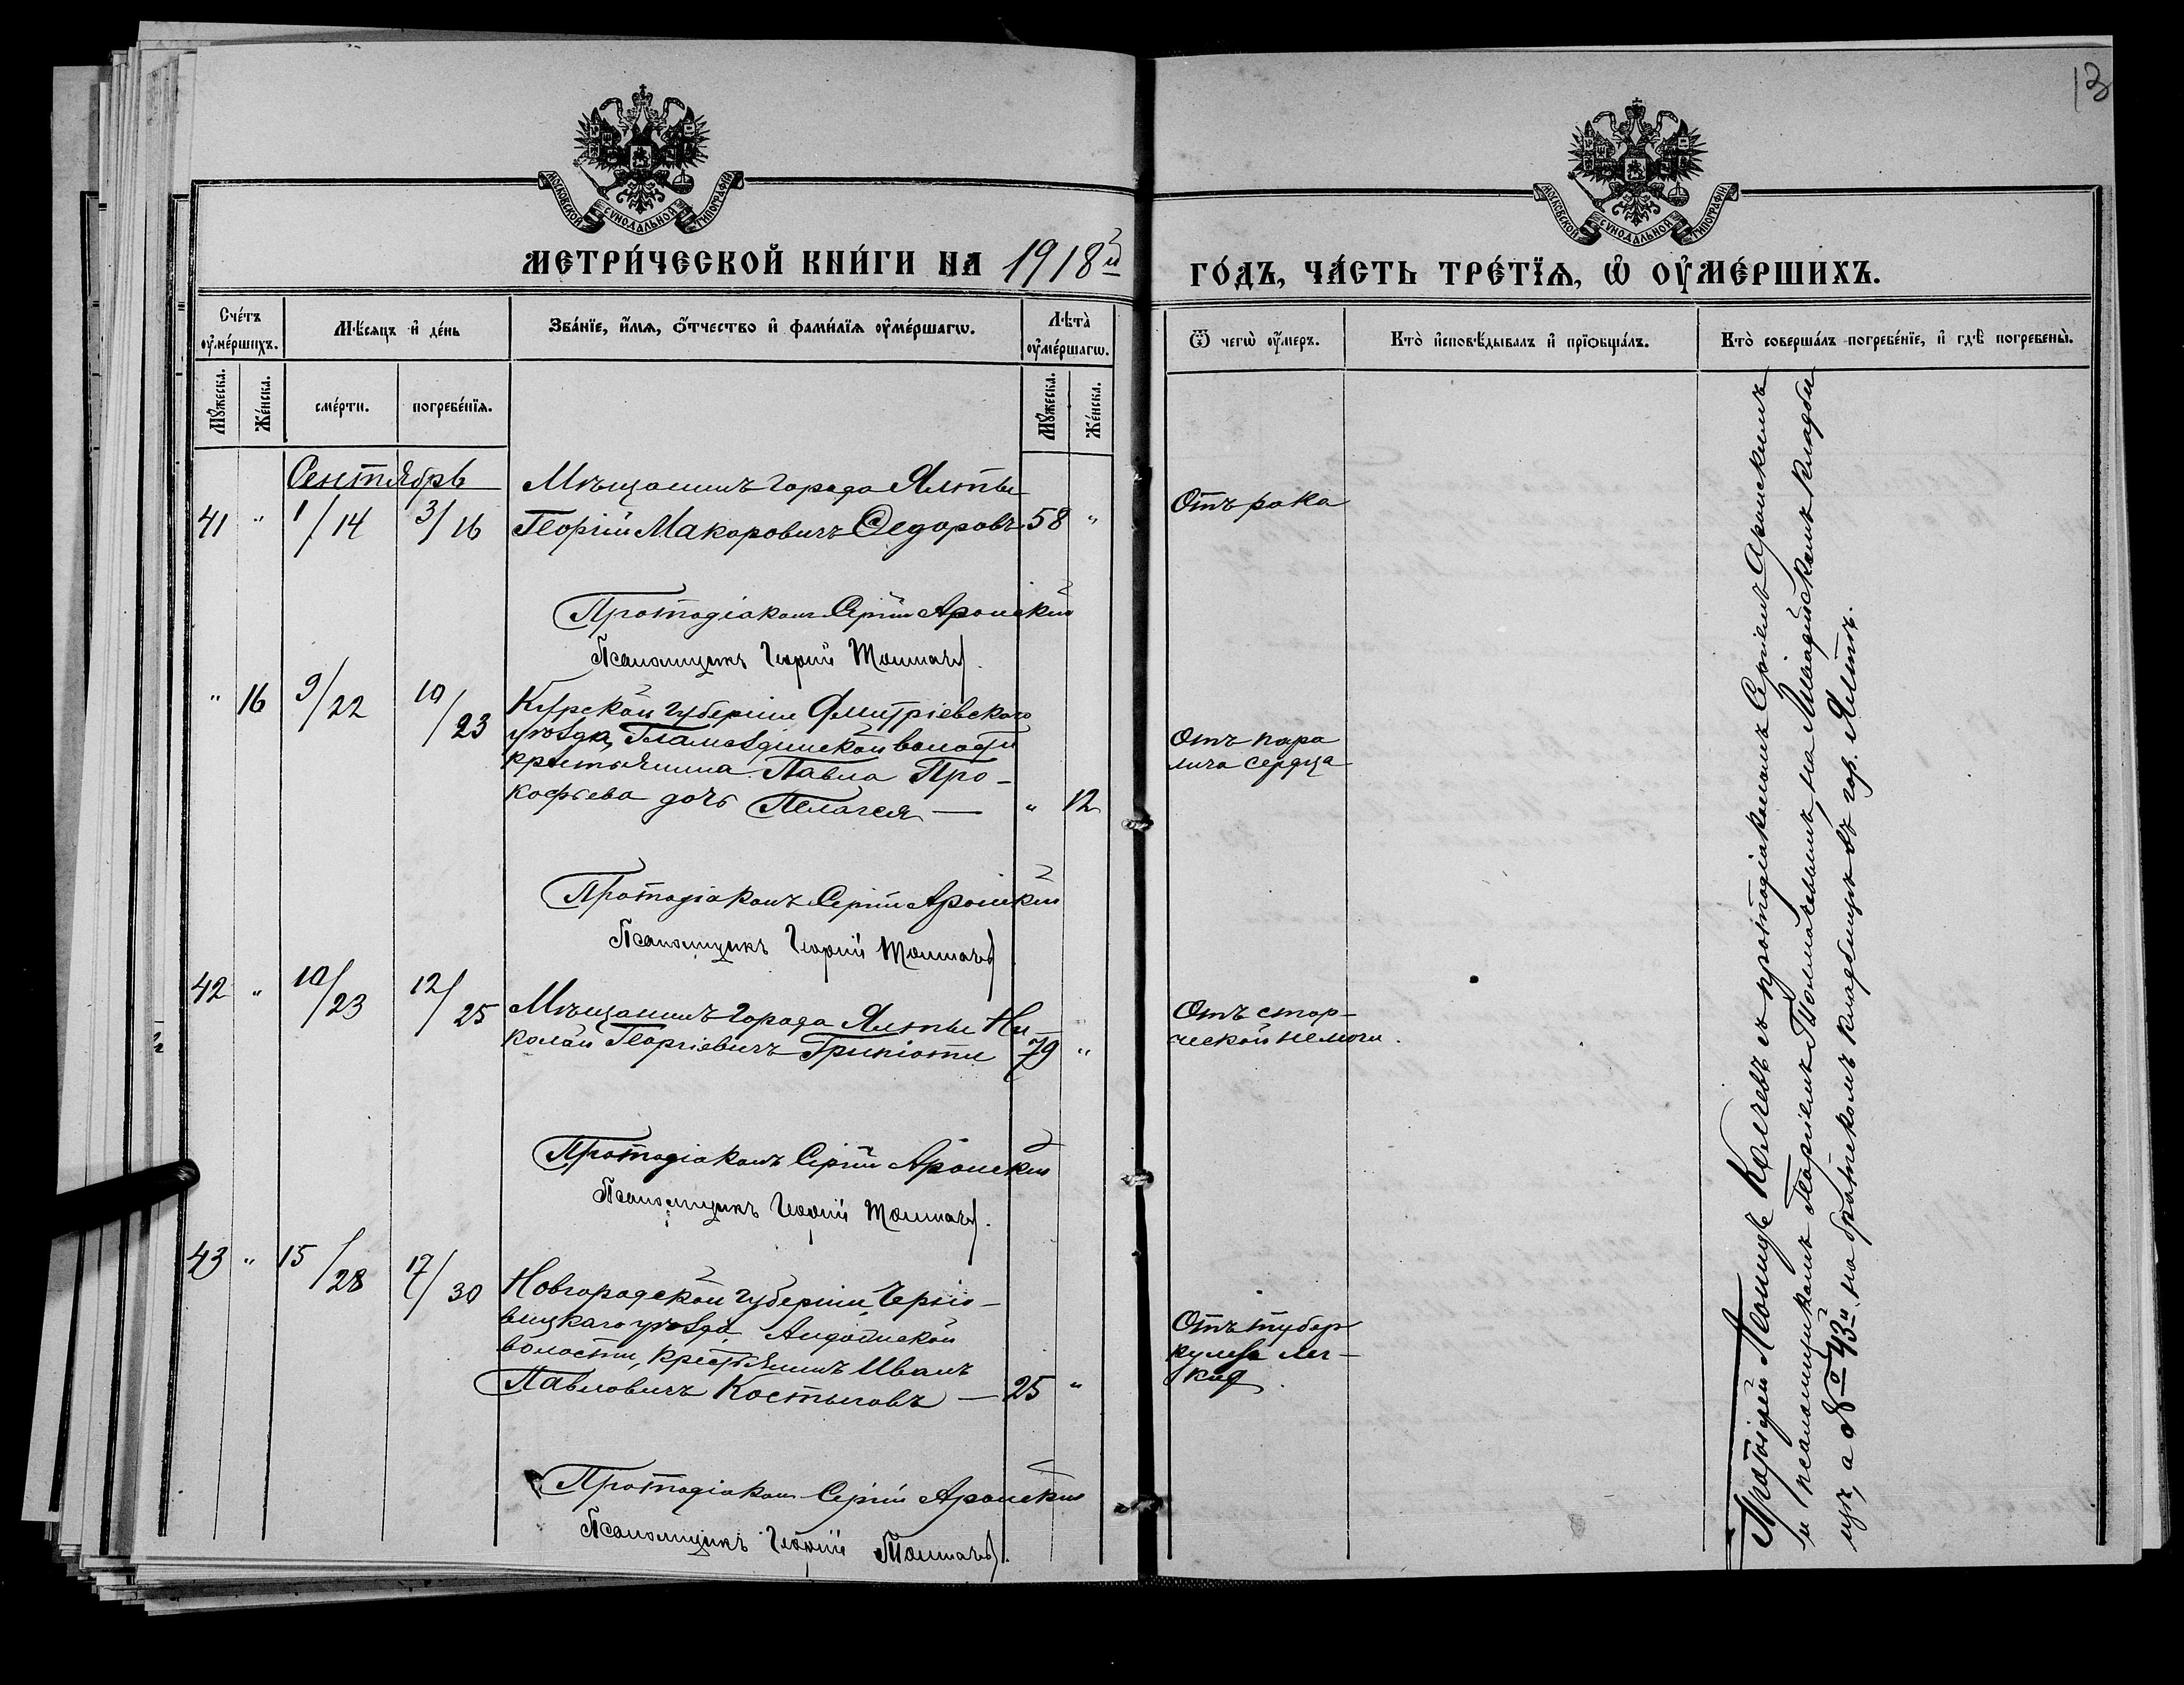 13
МОСКОВСКОЙ СѴНОДАЛЬНОЙ ТИПОГРАФІИ
МОСКОВСКОЙ СѴНОДАЛЬНОЙ ТИПОГРАФІИ
МЕТРИ́ЧЕСКОЙ КНИ́ГИ НА 1918й
ГО́ДЪ, ЧА́СТЬ ТРЕ́ТЇѦ, Ѡ҆ ОУ҆МЕ́РШИХЪ.
Сче́тъ оу҆ме́ршихъ.
Мѣ́сяцъ и҆ де́нь
Зва́нїе, и҆́мѧ, ѻ҆́тчество и҆ фами́лїѧ оу҆ме́ршагѡ.
Лѣ́та оу҆ме́ршагѡ.
Ѿ чегѡ̀ оу҆́меръ.
Кто̀ и҆сповѣ́дывалъ и҆ прїѡбща́лъ.
Кто̀ соверша́лъ погребе́нїе, и҆ гдѣ̀ погребены̀.
Мꙋ́жеска.
Же́нска.
сме́рти.
погребе́нїѧ.
Мꙋ́жеска.
Же́нска.
Сентябрь
Мѣщанинъ города Ялты
41 " 1/14 3/16 Георгій Макаровичъ Ѳедоровъ 58 "
Отъ рака
Протодіаконъ Сергій Аронскій
Псаломщикъ Георгій Толмачев.
" 16 9/22 10/23 Курской губерніи Дмитріевскаго
уѣзда, волости
крестьянина Павла Про-
кофьева дочь Пелагея — " 12
Отъ пара
лича сердца
Протодіаконъ Сергій Аронскій
Псаломщикъ Георгій Толмачев
42 " 10/23 12/25 Мѣщанинъ города Ялты Ни-
колай Георгіевичъ Грипіоти 79 "
Отъ стар-
ческой немочи.
Протодіаконъ Сергій Аронскій
Псаломщикъ Георгій Толмачев.
43 " 15/28 17/30 Новгородской губерніи Черпо-
вицкаго уѣзда
волости, крестьянинъ Иванъ
Павловичъ Костыговъ — 25 "
Отъ тубер
кулеза лег-
кихъ.
Протодіаконъ Сергій Аронскій
Псаломщикъ Георгій Толмачев.
Протоіерей Леонидъ Колчевъ съ протодіакономъ Сергіемъ Аронскимъ
и псаломщикомъ Георгіемъ Толмачевымъ на Ливадійскомъ кладби
щѣ, а № 43й на братскомъ кладбищѣ въ гор. Ялтѣ.